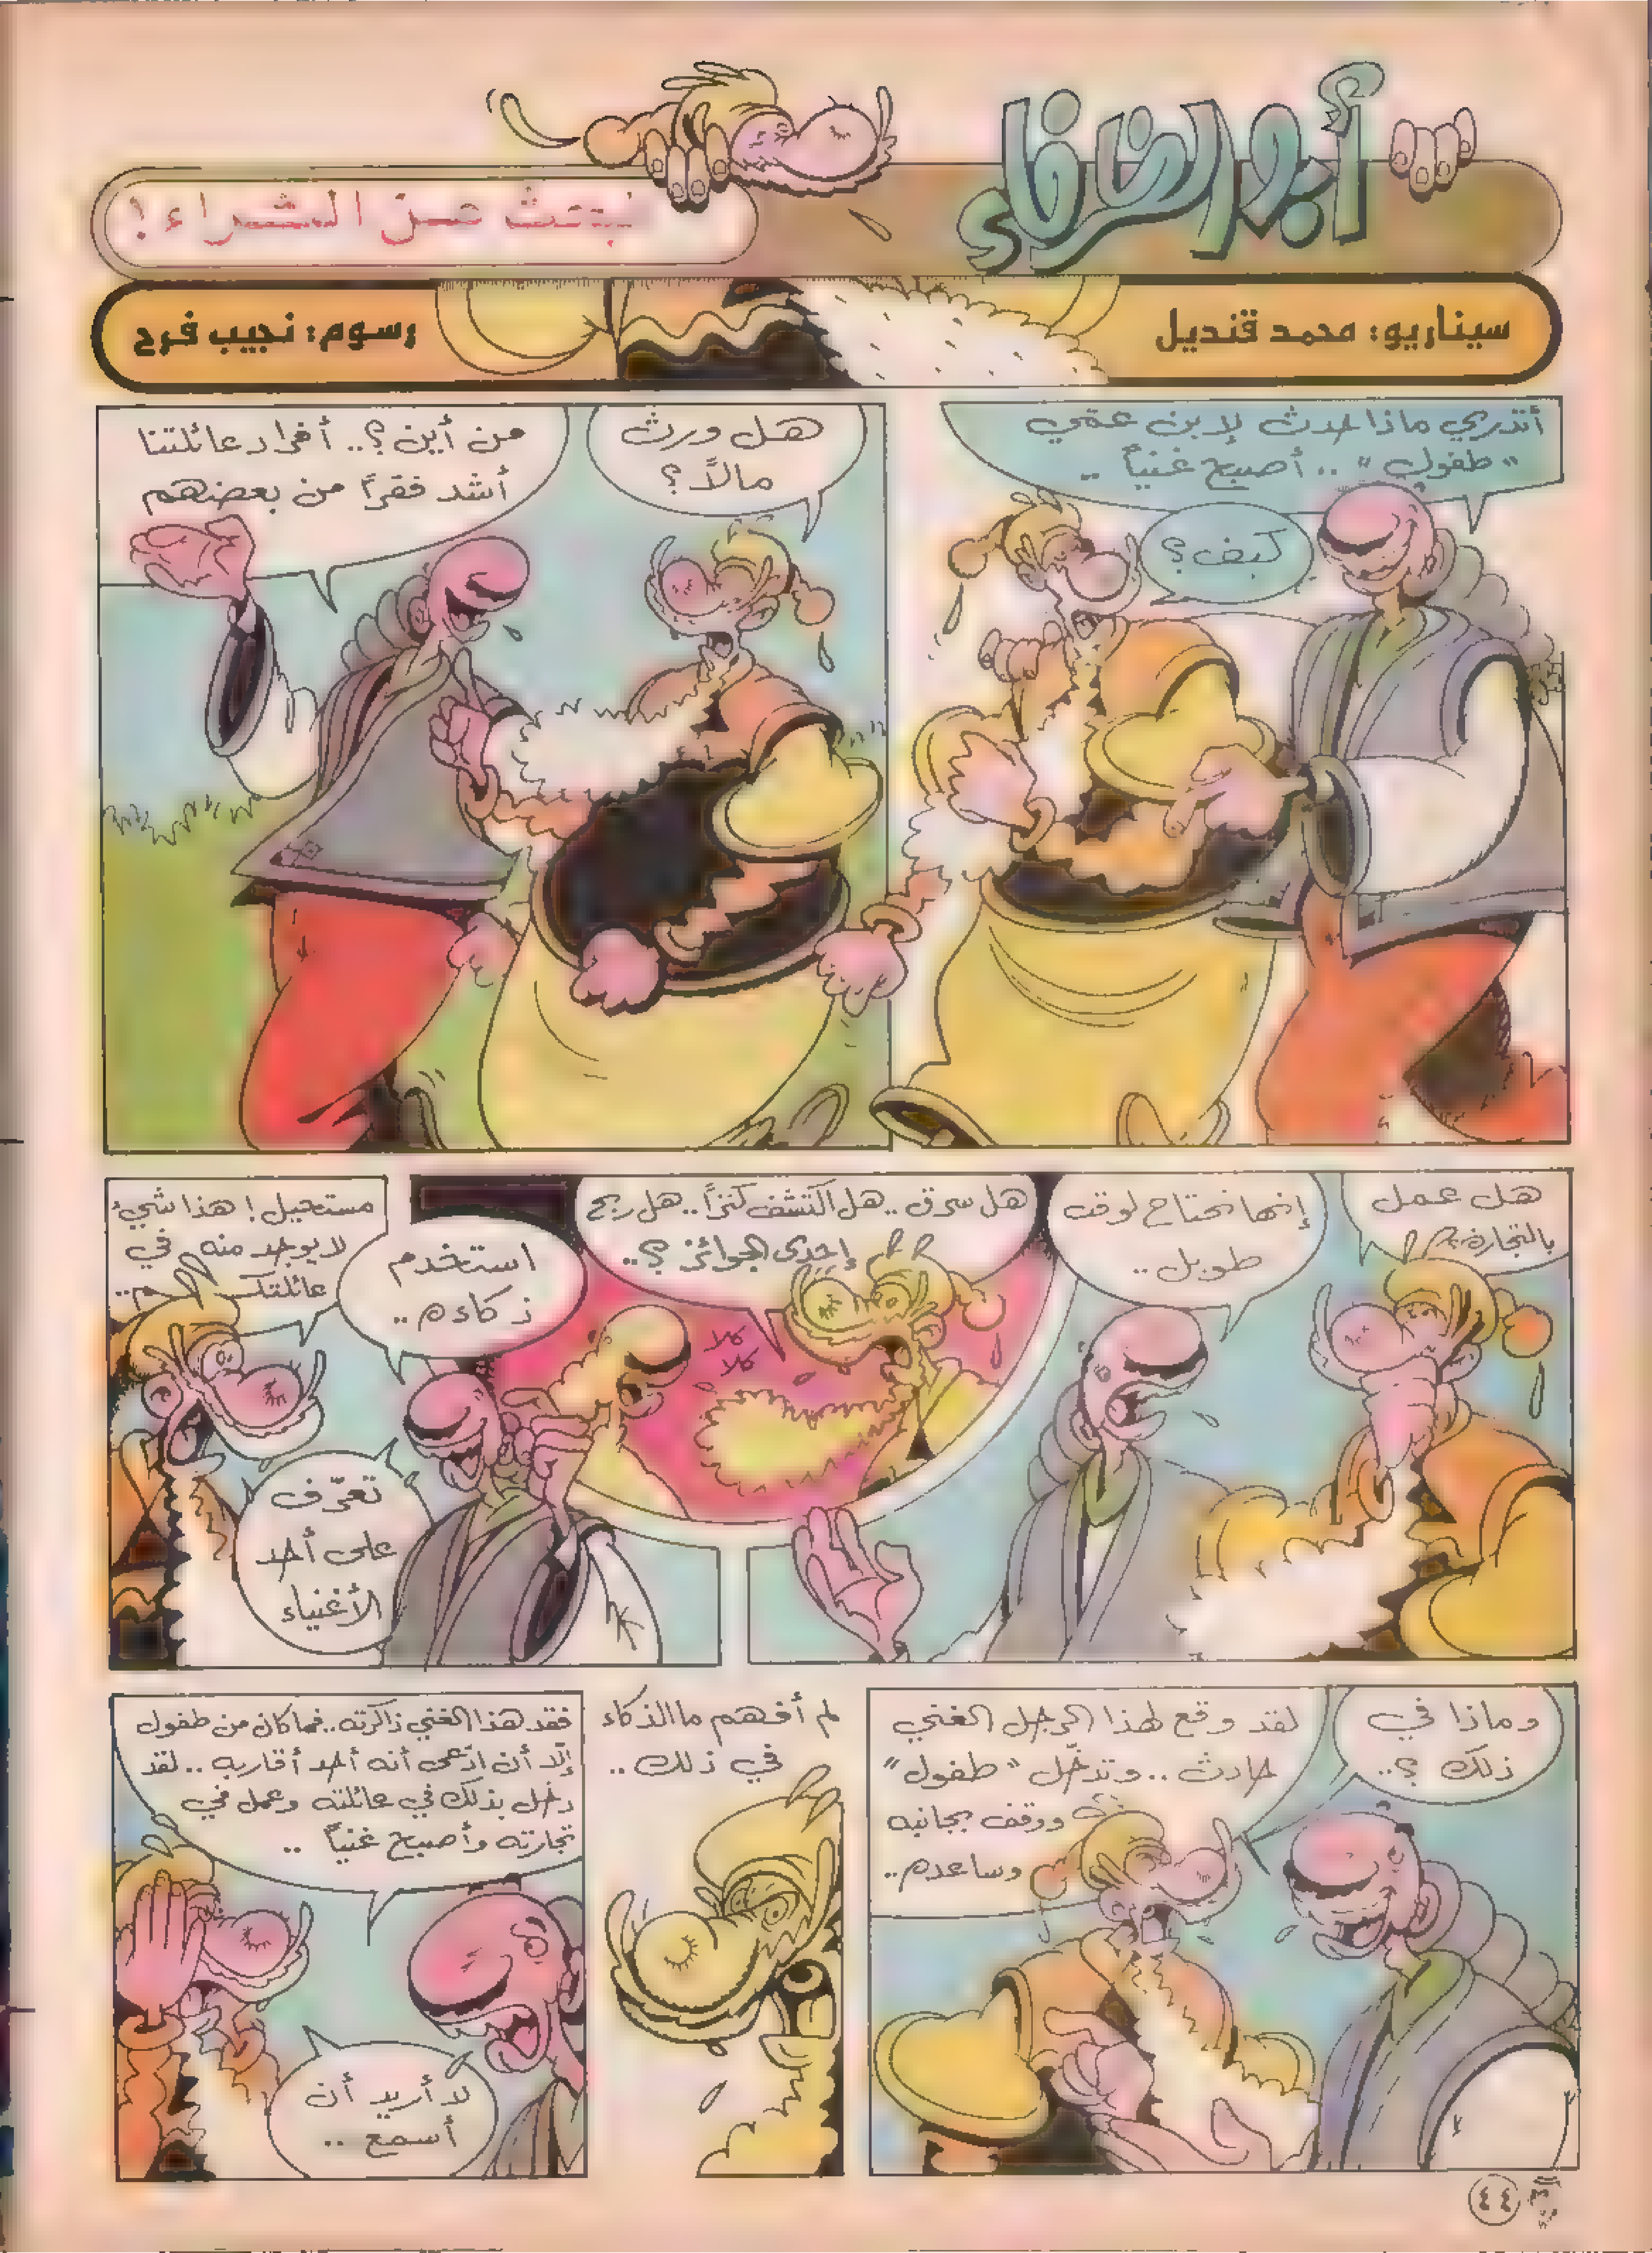 أبو الظرفاء
يبحث عن الثراء!
سيناريو: محمد قنديل
رسوم: نجيب فرح
أتدري ماذا حدث لإبن عمي
"طفول" .. أصبح غنياً ..
كيف؟
هل ورث
مالاً؟
من أين؟.. أفراد عائلتنا
أشد فقراً من بعضهم
هل عمل
بالتجارة؟
إنها تحتاج لوقت
طويل ..
هل سرق .. هل اكتشف كنزاً .. هل ربح
إحدى الجوائز؟..
كلا
كلا
استخدم
ذكاءه ..
مستحيل! هذا شيء
لا يوجد منه في
عائلتكم ..
تعرّف
على أحد
الأغنياء
وماذا في
ذلك؟..
لقد وقع لهذا الرجل الغني
حادث .. وتدخّل "طفول"
ووقف بجانبه
وساعده ..
لم أفهم ما الذكاء
في ذلك ..
فقد هذا الغني ذاكرته .. فما كان من طفول
إلّا أن ادّعى أنه أحد أقاربه .. لقد
دخل بذلك في عائلته وعمل في
تجارته وأصبح غنياً ..
لا أريد أن
أسمع ..
٤٤